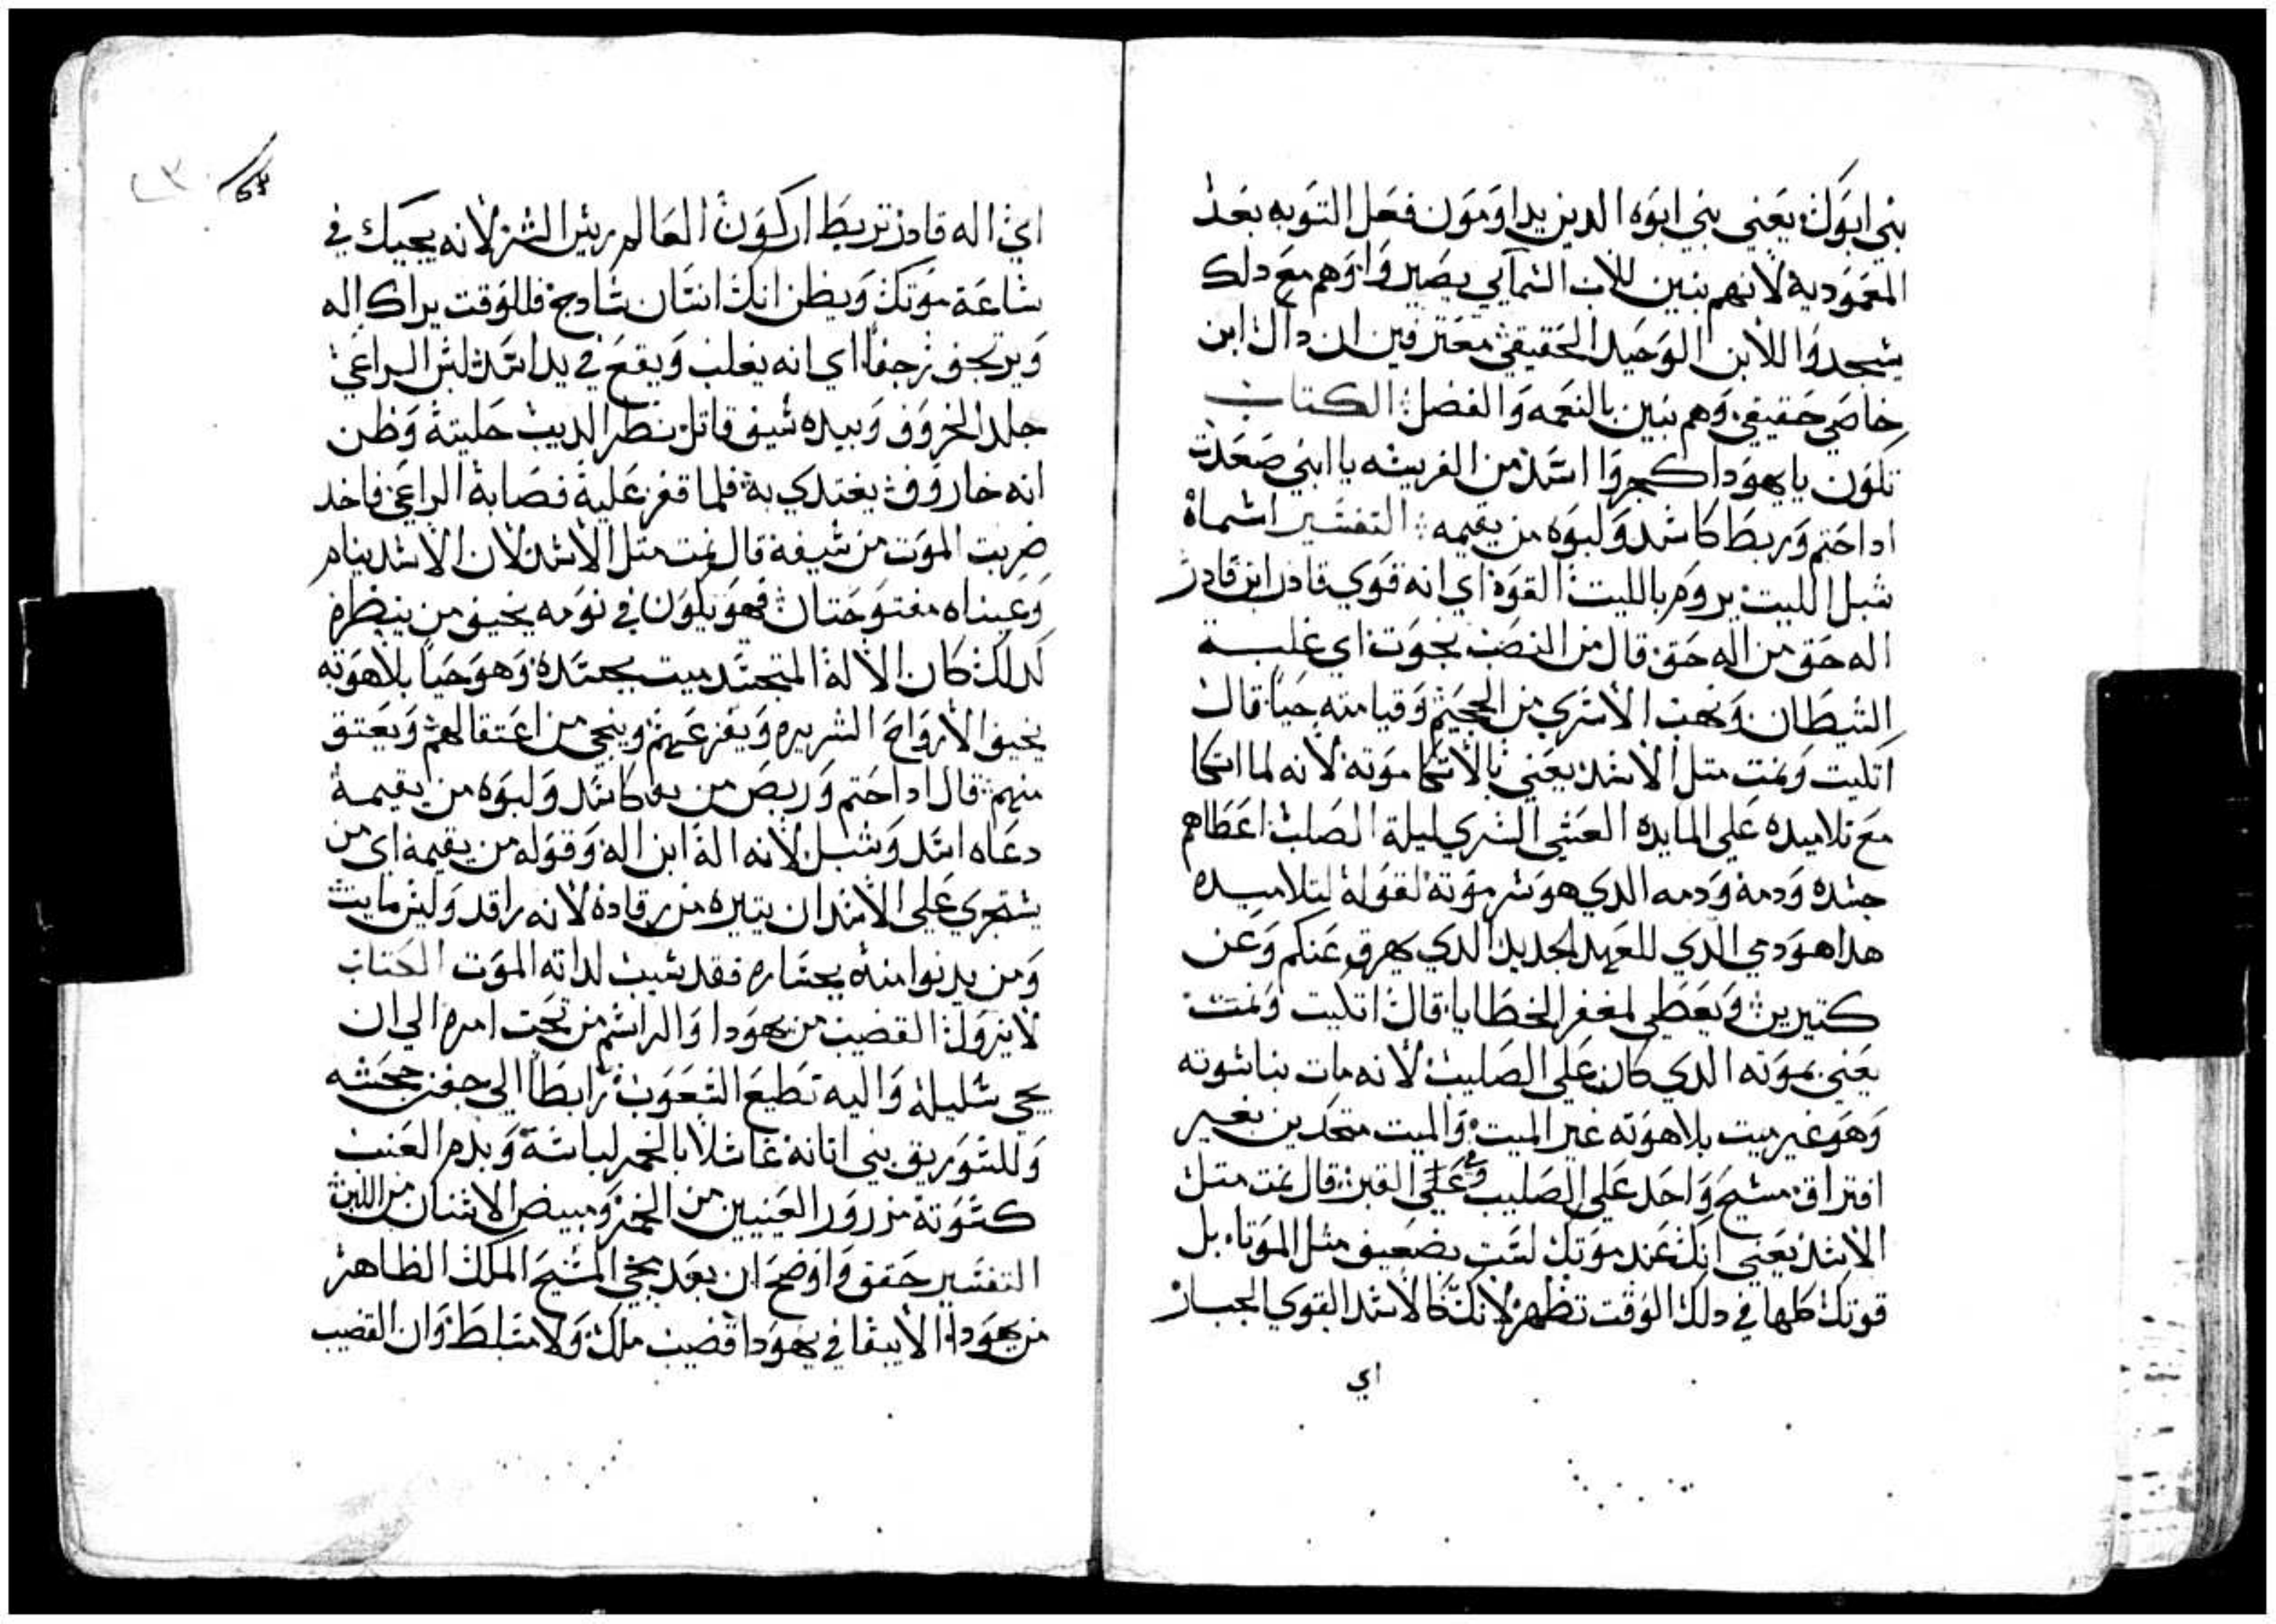 بني ابوك يعني بني ابوه الدين يداومون فعل التوبه بعد
المعمودية لانهم بنين للاب السمآيي يصيروا وهم مع دلك
يسجدوا للابن الوحيد الحقيقي معترفين ان داك ابن
خاصي حقيقي وهم بنين بالنعمه والفضل الكتاب
تكون يا يهودا كجروا اسد من الفريسه يا ابني صعدت
اداختم وربط كاسد ولبوه من يقيمه التفسير اسماه
شبل الليت يروم بالليت القوة اي انه قوي قادر ابن قادر
اله حق من اله حق قال من النصب نجوت اي غلبة
الشيطان ونهب الاسري من الجحيم وقيامته حيا قال
اتكيت ونمت متل الاسد يعني بالاتكا موته لانه لما اتكا
مع تلاميده علي المايده العشي السري ليلة الصلب اعطاهم
جسده ودمه ودمه الدي هو سر موته لقوله لتلاميده
هدا هو دمي الدي للعهد الجديد الدي يهرق عنكم وعن
كتيرين ويعطي لمغفر الخطايا قال اتكيت ونمت
يعني بموته الدي كان علي الصليب لانه مات بناسوته
وهو غير ميت بلاهوته غير الميت والميت متحدين بغير
افتراق مسيح واحد علي الصليب وفي علي القبر قال نمت متل
الاسد يعني انك عند موتك لست بضعيف مثل الموتاء بل
قوتك كلها في دلك الوقت تظهر لانك كالاسد القوي الجبار
اي
اي اله قادر تربط اركون العالم ريس الشر لانه يجيك في
ساعة موتك ويظن انك انسان سادج فللوقت يراك اله
ويرتجف رجفا اي انه يغلب ويقع في يد اسد لبس الراعي
جلد الخروف وبيده سيف قاتل نظر الديب حليته وظن
انه خاروف يغتدي به فلما قفز عليه فصابه الراعي فاخد
ضربت الموت من سيفه قال نمت متل الاسد لان الاسد ينام
وعيناه مفتوحتان فهو يكون في نومه يخيف من ينظره
لدلك كان الاله المتجسد ميت بجسده وهو حيا بلاهوته
يخيف الارواح الشريره ويفزعهم وينجي من اعتقالهم ويعتق
منهم قال اداختم وربض من كاسد ولبوه من يقيمه
دعاه اسد وشبل لانه اله ابن اله وقوله من يقيمه اي من
يستجري علي الاسد ان يتيره من رقاده لانه راقد وليس مايت
ومن يدنوا منه بجساره فقد سبب لداته الموت الكتاب
لا يزول القضيب من يهودا والراسم من تحت امره الي ان
يجي سليله واليه تطيع الشعوب رابطا الي جفنه جحشه
وللسوريق بني اتانه غاسلا بالخمر لباسه وبدم العنب
كسوته مزرور العينين من الخمر ومبيض الاسنان من اللبن
التفسير حقق واوضح ان بعد مجي المسيح الملك الظاهر
من يهودا لا يبقا في يهودا قضيب ملك ولا متسلط وان القضيب